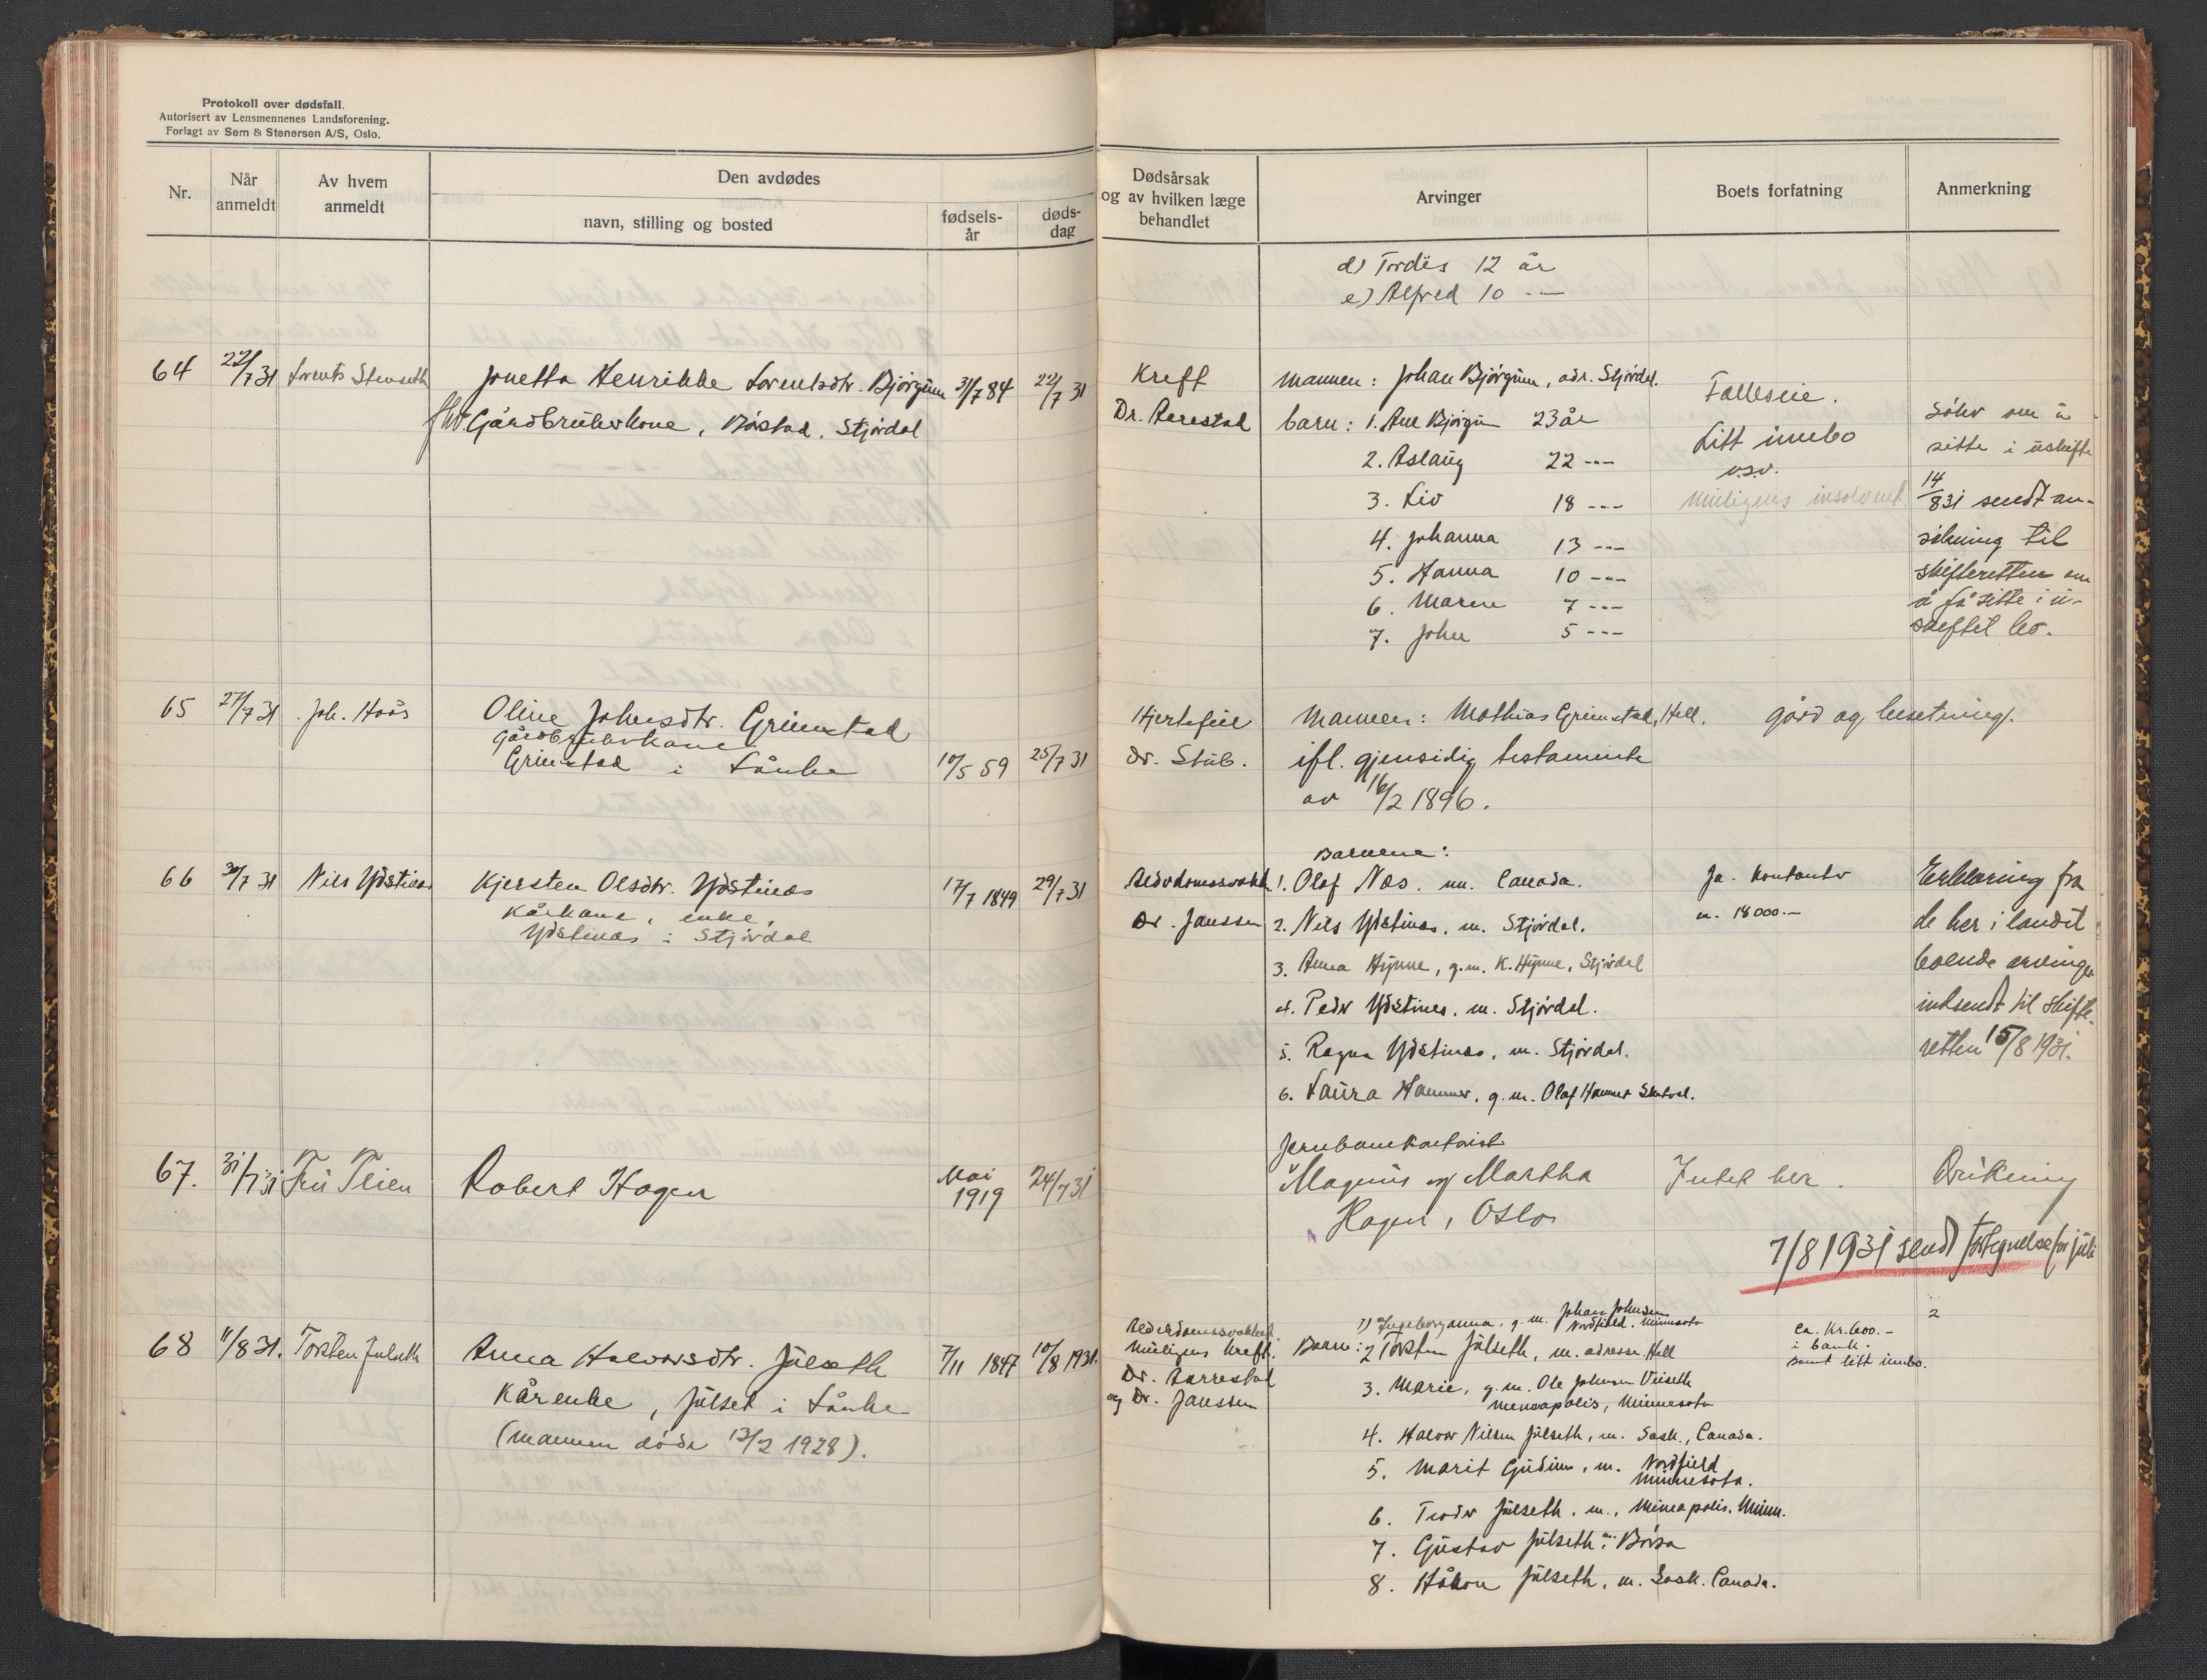 Protokoll over dødsfall.
Autorisert av Lensmennenes Landsforening.
Forlagt av Sem & Stenersen A/S, Oslo.
Nr.
Når anmeldt
Av hvem anmeldt
Den avdødes
navn, stilling og bosted
fødsels-år
døds-dag
Dødsårsak og av hvilken læge behandlet
Arvinger
Boets forfatning
Anmerkning
d) Tordis 12 år
e) Alfred 10 -—
64 22/7 31 Lorents Stenseth Jonetta Henrikke Lorentsdtr. Bjørgum 31/7 84 22/7 31
Gårdbrukerkone, Røstad, Stjørdal
Kreft
Dr. Aarestad
mannen: Johan Bjørgum, adr. Stjørdal.
barn: 1. Ane Bjørgum 23 år
2. Aslaug 22 ---
3. Liv 18 ---
4. Johanna 13 ---
5. Hanna 10 ---
6. Maren 7 ---
7. John 5 ---
Felleseie.
Litt innbo
o.s.v.
muligens insolvent.
Søker om å
sitte i uskifte
14/8 31 sendt an-
søkning til
skifteretten om
å få sitte i u-
skiftet bo.
65 27/7 31 Joh. Hoås Oline Johnsdtr. Grimstad
Gårdbrukerkone
Grimstad i Lånke 10/5 59 25/7 31
Hjertefeil
Dr. Stub.
Mannen: Mathias Grimstad, Hell.
ifl. gjensidig testamente
av 16/2 1896.
gård og besetning.
66 30/7 31 Nils Ydstines Kjersten Olsdtr. Ydstines 17/7 1849 29/7 31
Kårkone, enke,
Ydstines i Stjørdal
Alderdomssvakh.
Dr. Janssen
Barnene:
1. Olaf Næs. m. Canada.
2. Nils Ydstines. m. Stjørdal.
3. Anna Hynne, g.m. K. Hynne, Stjørdal
4. Peder Ydstines. m. Stjørdal.
5. Ragna Ydstines, m. Stjørdal.
6. Laura Hammer, g.m. Olaf Hammer Skatval.
Ja. kontanter
m. 18000.—
Erklæring fra
de her i landet
boende arvinger
innsendt til skifte-
retten 15/8 1931.
67. 31/7 31 Fru Teien Robert Hagen Mai 1919 24/7 31
Jernbanekontorist
Magnus og Martha
Hagen, Oslo
Intet her.
Drukning
7/8 1931 sendt fortegnelse for juli
2
68 11/8 31. Torsten Julseth Anna Halvorsdtr. Julseth 7/11 1847 10/8 1931.
Kårenke, Julset i Lånke
(mannen døde 13/2 1928).
Alderdomssvakhet.
Muligens kreft.
Dr. Aarrestad
og Dr. Janssen
Barn: 1) Ingeborganna, g.m. Johan Johnsen
Nordfield. Minnesota
2 Torsten Julseth, m. adresse Hell
3. Marie, g.m. Ole Johnsen
Meneapolis, Minnesota
4. Halvor Nilsen Julseth, m. Sask., Canada.
5. Marit Gudim, m. Nordfield
Minnesota.
6. Peder Julseth. m., Mineapolis. Minn.
7. Gustav Julseth. m. Børsa
8. Håkon Julseth, m. Sask. Canada.
ca. kr. 600.—
i bank.
samt litt innbo.